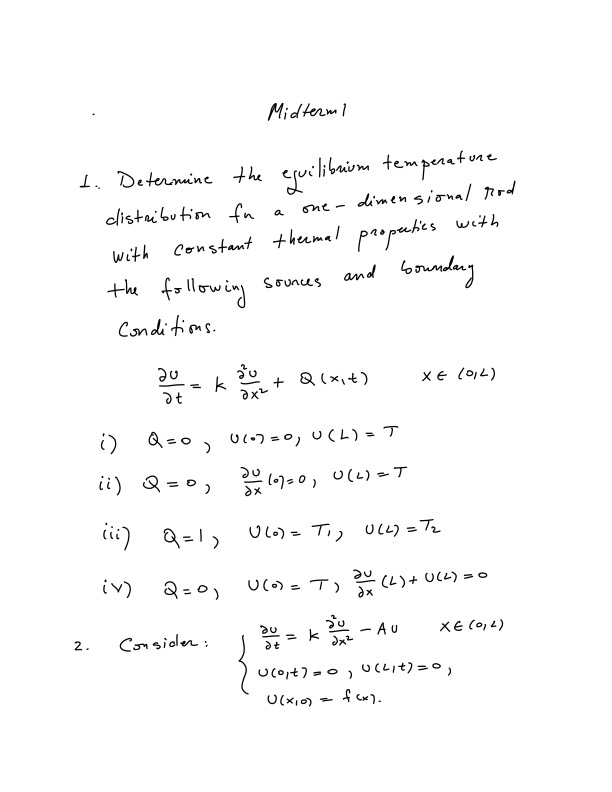 Midterm 1
1. Determine the equilibrium temperature
distribution for a one-dimensional rod
with constant thermal properties with
the following sources and boundary
Conditions.
∂U/∂t = k ∂²U/∂x² + Q(x,t) x ∈ (0,L)
i) Q=0, U(0)=0, U(L)=T
ii) Q=0, ∂U/∂x (0)=0, U(L)=T
iii) Q=1, U(0)=T₁, U(L)=T₂
iv) Q=0, U(0)=T, ∂U/∂x (L)+U(L)=0
2. Consider: { ∂U/∂t = k ∂²U/∂x² - AU x ∈ (0,L)
U(0,t)=0, U(L,t)=0,
U(x,0) = f(x).